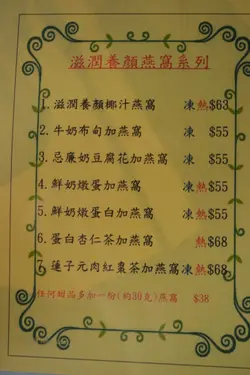 滋潤養顏燕窩系列
1. 滋潤養顏椰汁燕窩 凍熱$63
2. 牛奶布甸加燕窩 凍 $55
3. 忌廉奶豆腐花加燕窩 凍 $55
4. 鮮奶燉蛋加燕窩 凍熱$55
5. 鮮奶燉蛋白加燕窩 凍熱$55
6. 蛋白杏仁茶加燕窩 熱$68
7. 蓮子元肉紅棗茶加燕窩 凍熱$68
任何甜品多加一份(約30克)燕窩 $38